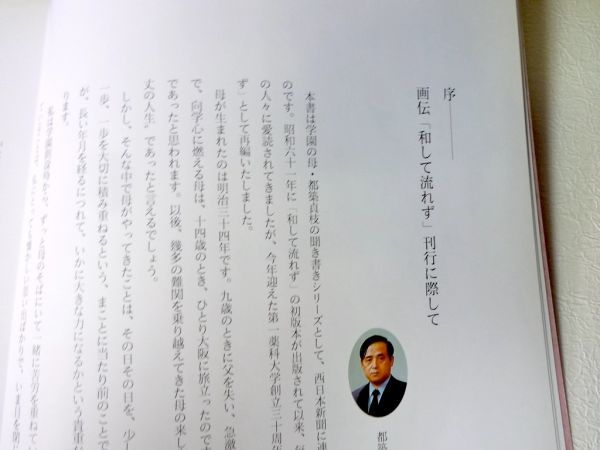 序
画伝「和して流れず」刊行に際して
都築
本書は学園の母・都築貞枝の聞き書きシリーズとして、西日本新聞に連
のです。昭和六十一年に「和して流れず」の初版本が出版されて以来、
の人々に愛読されてきましたが、今年迎えた第一薬科大学創立三十周年
ず」として再編いたしました。
母が生まれたのは明治三十四年です。九歳のときに父を失い、急激
で、向学心に燃える母は、十四歳のとき、ひとり大阪に旅立ったのです
であったと思われます。以後、幾多の難関を乗り越えてきた母の来し
丈の人生”であったと言えるでしょう。
しかし、そんな中で母がやってきたことは、その日その日を、少し
一歩、一歩を大切に積み重ねるという、まことに当たり前のことで
が、長い年月を経るにつれて、いかに大きな力になるかという貴重な
ります。
私は学園創設時から、ずっと母のそばにいて一緒に苦労を重ねてい